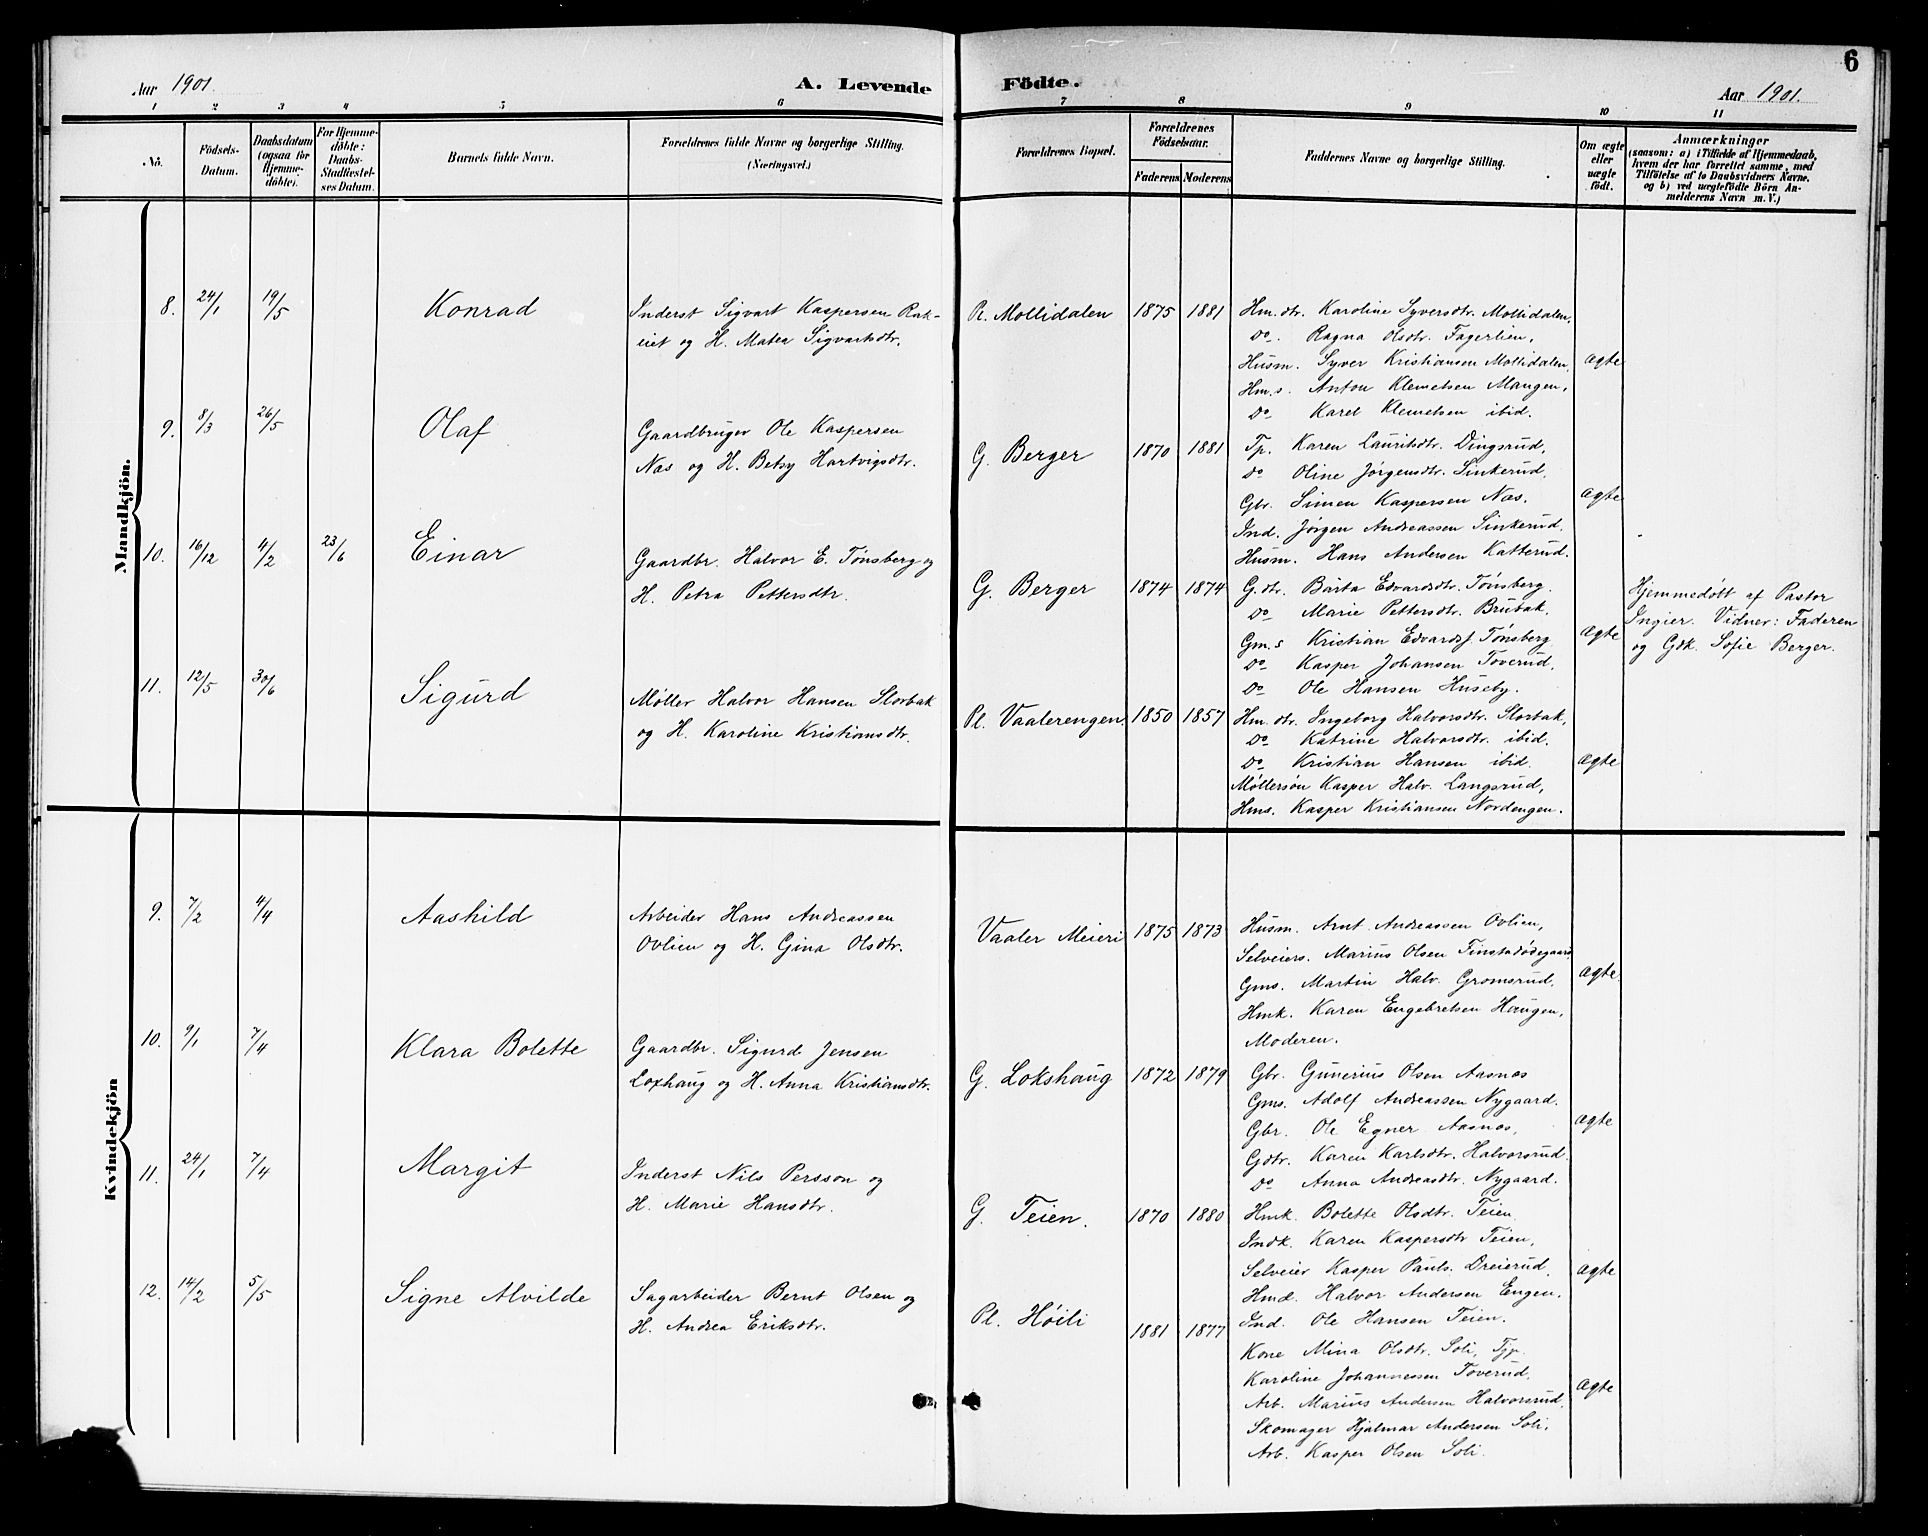 6
Aar 1901.
A. Levende
Födte.
Aar 1901.
1 2 3 4 5 6 7 8 9 10 11
No.
Födsels-
Datum.
Daabsdatum
(ogsaa for
Hjemme-
döbte).
For Hjemme-
döbte:
Daabs-
Stadfæstel-
ses Datum.
Barnets fulde Navn.
Forældrenes fulde Navne og borgerlige Stilling.
(Næringsvei.)
Forældrenes Bopæl.
Forældrenes
Födselsaar.
Faderens
Moderens
Faddernes Navne og borgerlige Stilling.
Om ægte
eller
uægte
födt.
Anmærkninger
(saasom: a) i Tilfælde af Hjemmedaab,
hvem der har forrettet samme, med
Tilföielse af to Daabsvidners Navne,
og b) ved uægtefödte Börn An-
melderens Navn m. V.)
Mandkjön.
8. 24/1 19/5 Konrad
Inderst Sigvart Kaspersen Rak-
eiet og H. Matea Sigvartsdtr.
Pl. Mollidalen 1875 1881
Hm. dtr. Karoline Syversdtr. Mollidalen,
Do. Ragna Olsdtr. Fagerlien,
Husm. Syver Kristiansen Mollidalen,
Hm. s. Anton Klemetsen Mangen,
Do Karel Klemetsen ibid.
Ægte
9. 8/3 26/5 Olaf
Gaardbruger Ole Kaspersen
Næs og H. Betsy Hartvigsdtr.
G. Berger 1870 1881
Tp. Karen Lauritsdtr. Dingsrud,
Do Oline Jørgensdtr. Sinkerud,
Gbr. Simen Kaspersen Næs.
Ind. Jørgen Andreassen Sinkerud.
Husm. Hans Andersen Katterud.
Ægte
10. 16/12 4/2 23/6 Einar
Gaardbr. Halvor E. Tønsberg og
H. Petra Pettersdtr.
G. Berger 1874 1874
G. dtr. Barta Edvardsdtr. Tønsberg.
Do Marie Pettersdtr. Brubak.
Gm. s Kristian Edvards. Tønsberg
Do Kasper Johansen Toverud,
Do Ole Hansen Huseby.
Ægte
Hjemmedøbt af Pastor
Ingier. Vidner: Faderen
og Gdk. Sofie Berger.
11. 12/5 30/6 Sigurd
Møller Halvor Hansen Storbak
og H. Karoline Kristiansdtr.
Pl. Vaalerengen. 1850 1857
Hm. dtr. Ingeborg Halvorsdtr. Storbak,
Do Katrine Halvorsdtr. ibid.
Do Kristian Hansen ibid.
Møllersøn Kasper Halv. Langsrud,
Hms. Kasper Kristiansen Nordengen.
Ægte
Kvindekjön
9. 7/2 4/4 Aashild
Arbeider Hans Andreassen
Ovlien og H. Gina Olsdtr.
Vaaler Meieri 1875 1873
Husm. Arnt Andreassen Ovlien,
Selveiers. Marius Olsen Finstadødegaard
Gms. Martin Halv. Gromsrud,
Hmk. Karen Engebretsen Haugen,
Moderen.
Ægte
10. 9/1 7/4 Klara Bolette
Gaardbr. Sigurd Jensen
Loxhaug og H. Anna Kristiansdtr.
G. Lokshaug 1872 1879
Gbr. Gunerius Olsen Aasnæs
Gms. Adolf Andreassen Nygaard.
Gbr. Ole Egner Aasnæs,
Gdtr. Karen Karlsdtr. Halvorsrud.
Do Anna Andreasdtr. Nygaard.
Ægte
11. 24/1 7/4 Margit
Inderst Nils Persson og
H. Marie Hansdtr.
G. Teien. 1870 1880
Hmk. Bolette Olsdtr. Teien
Indk. Karen Kaspersdtr Teien,
Selveier Kasper Pauls. Dreierud,
Hmd. Halvor Andersen Engen,
Ind. Ole Hansen Teien.
Ægte
12. 14/2 5/5 Signe Alvilde
Sagarbeider Bernt Olsen og
H. Andrea Eriksdtr.
Pl. Høili 1881 1877
Kone Mina Olsdtr. Soli, Tjp.
Karoline Johannessen Toverud,
Arb. Marius Andersen Halvorsrud,
Skomager Hjalmar Andersen Soli,
Arb. Kasper Olsen Soli.
Ægte